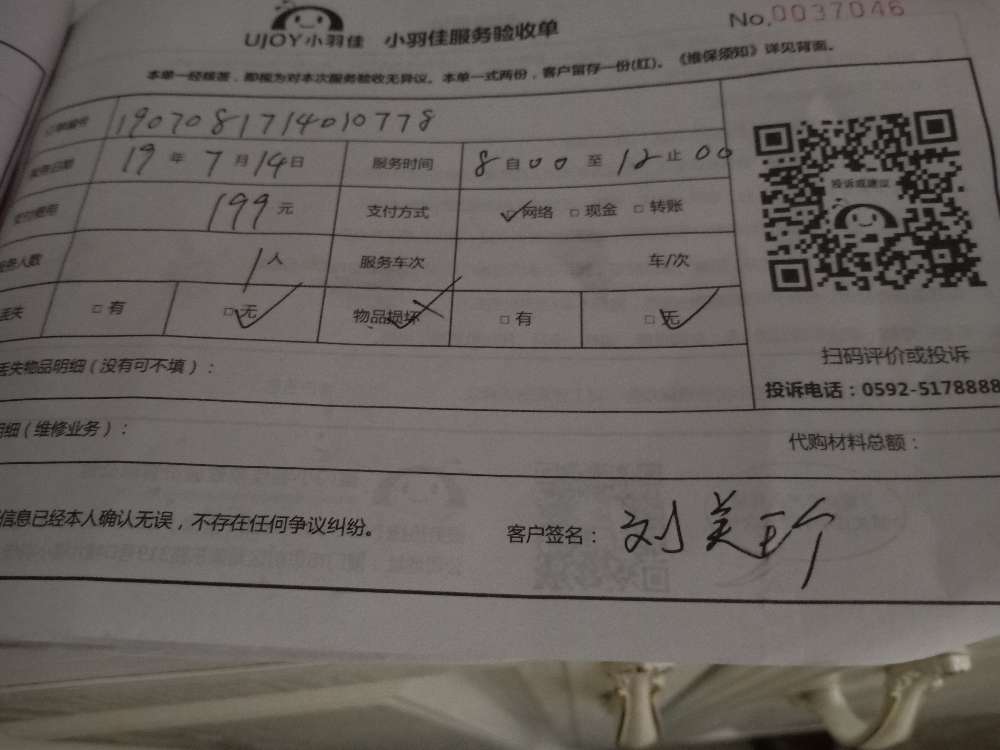 UJOY小羽佳 小羽佳服务验收单 No.0037046
本单一经核签，即视为对本次服务验收无异议。本单一式两份，客户留存一份(红)。《维保须知》详见背面。
订单编号 1907081714010778
服务日期 19年7月14日 服务时间 8自00至12止00
支付费用 199元 支付方式 网络 现金 转账
服务人数 1人 服务车次 车/次
丢失 有 无 物品损坏 有 无
投诉或建议
扫码评价或投诉
投诉电话：0592-5178888
丢失物品明细（没有可不填）：
明细（维修业务）： 代购材料总额：
信息已经本人确认无误，不存在任何争议纠纷。 客户签名：刘美珍